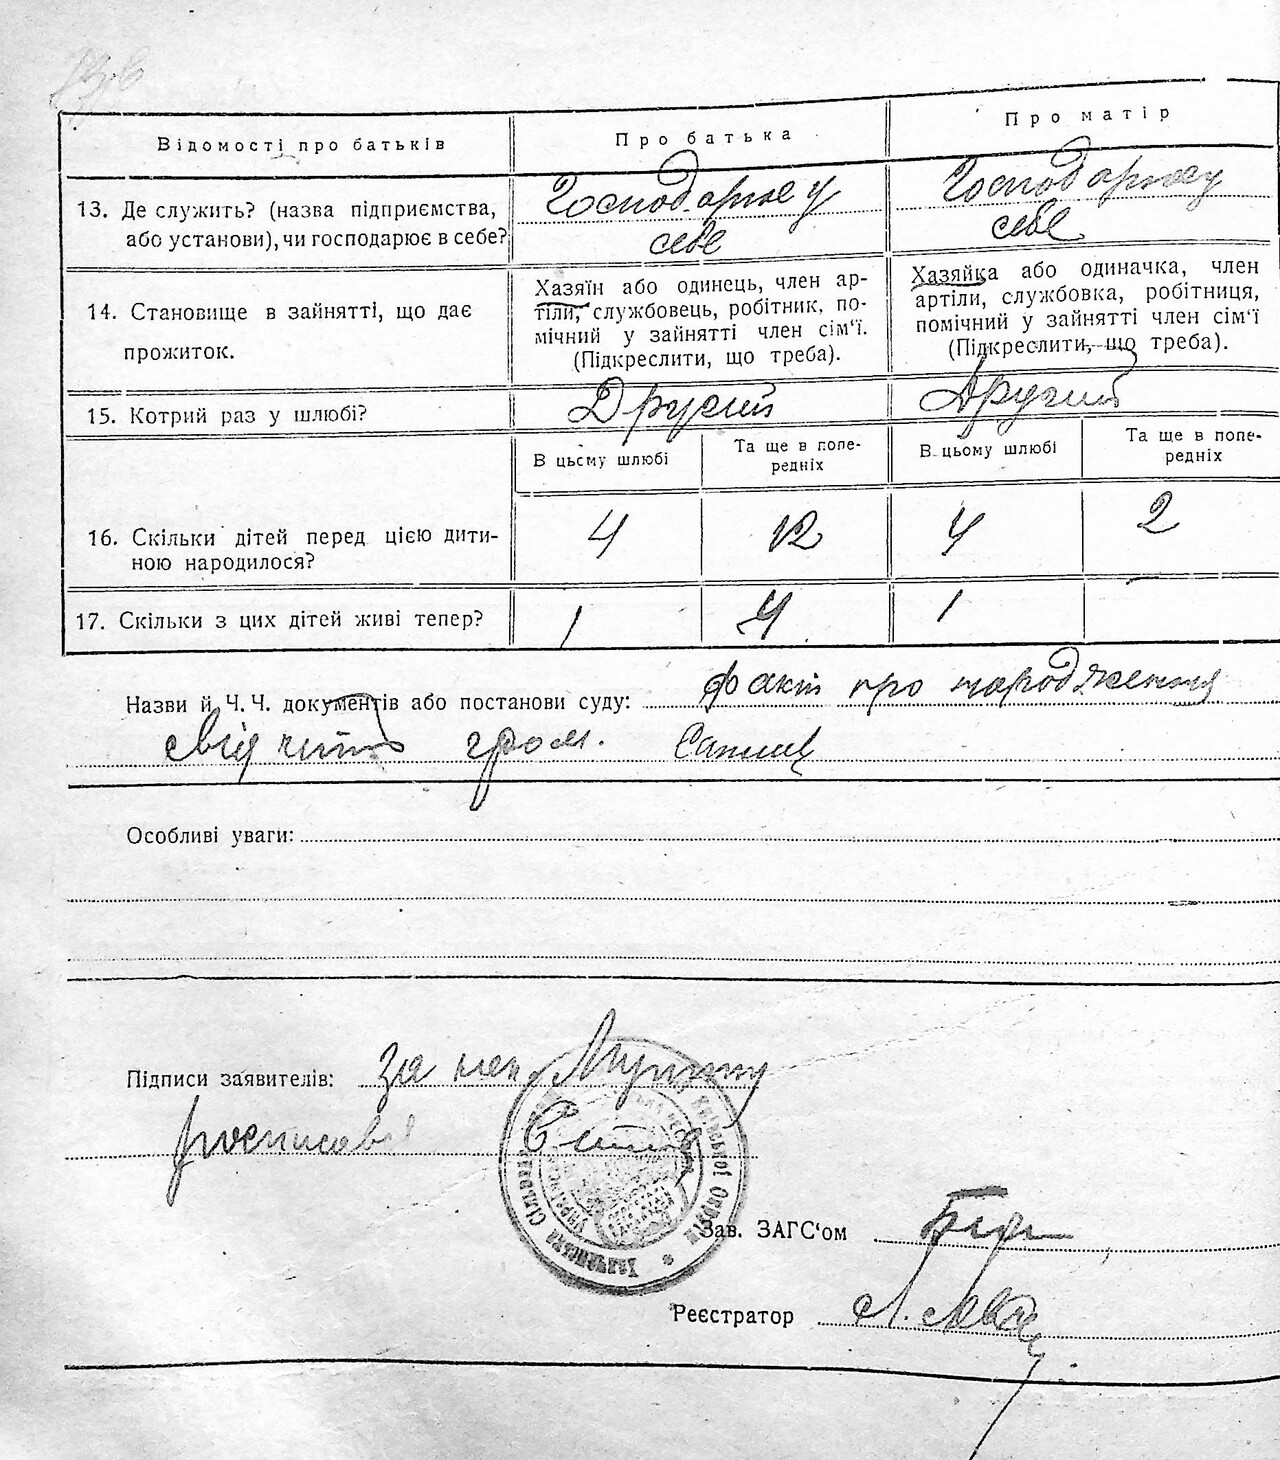 Відомості про батьків
Про батька
Про матір
13. Де служить? (назва підприємства,
або установи), чи господарює в себе?
Господарює у
себе
Господарює у
себе
14. Становище в зайнятті, що дає
прожиток.
Хазяїн або одинець, член ар-
тіли, службовець, робітник, по-
мічний у зайнятті член сім'ї.
(Підкреслити, що треба).
Хазяйка або одиначка, член
артіли, службовка, робітниця,
помічний у зайнятті член сім'ї
(Підкреслити, що треба).
15. Котрий раз у шлюбі?
Другий
Другий
В цьому шлюбі
Та ще в попе-
редніх
В цьому шлюбі
Та ще в попе-
редніх
16. Скільки дітей перед цією дити-
ною народилося?
4
12
4
2
17. Скільки з цих дітей живі тепер?
1
4
1
Назви й Ч. Ч. документів або постанови суду: факт про народження
свідчить гром.
Особливі уваги:
Підписи заявителів: За неп.
росписався
Київської Округи
Зав. ЗАГС'ом
Реєстратор